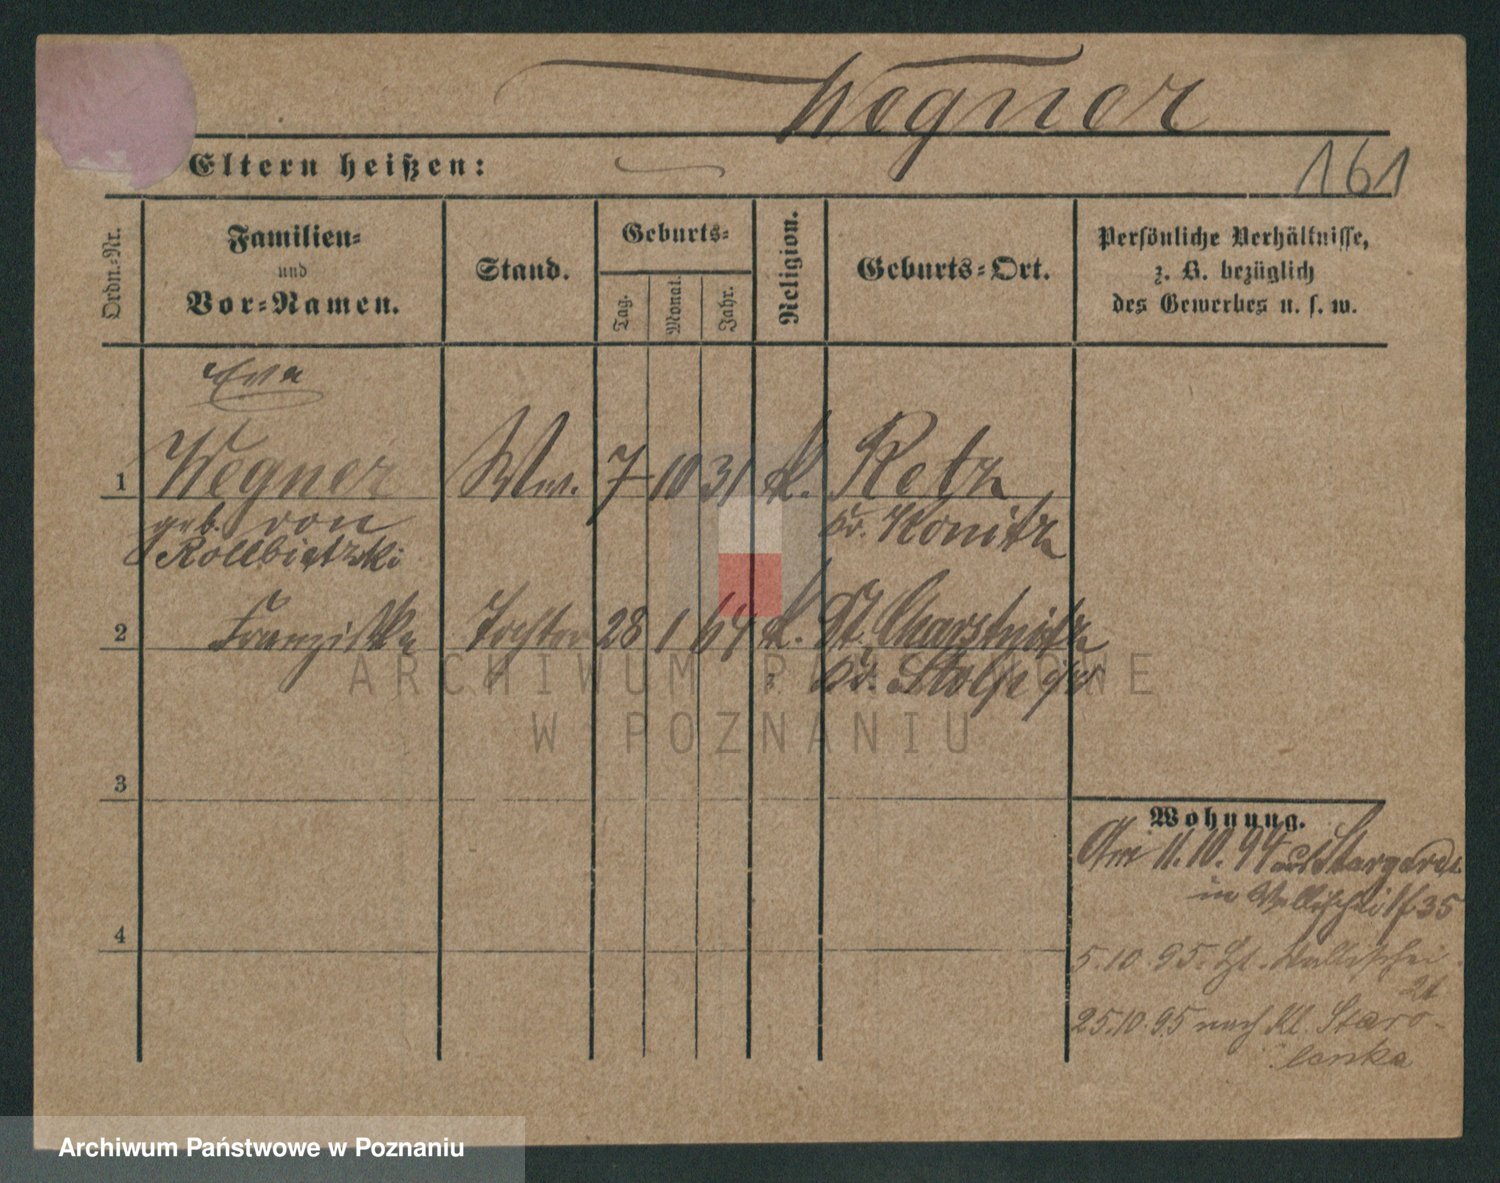 Wegner
Eltern heißen:
161
Ordn.-Nr.
Familien-
und
Vor-Namen.
Stand.
Geburts-
Tag.
Monat.
Jahr.
Religion.
Geburts-Ort.
Persönliche Verhältnisse,
z. B. bezüglich
des Gewerbes u. s. w.
Eva
1 Wegner Ww. 7 10 31 k. Retz
geb. von Kr. Konitz
Rollbietzki
2 Franziska Tochter 28 1 64 k. Gt.
Kr. Stolp
3
4
Wohnung.
Am 11.10.94 aus Stargard
in Wallischei 35
5.10.95. Wallischei
21
25.10.95 nach Kl. Staro-
lenka
ARCHIWUM PAŃSTWOWE
W POZNANIU
Archiwum Państwowe w Poznaniu